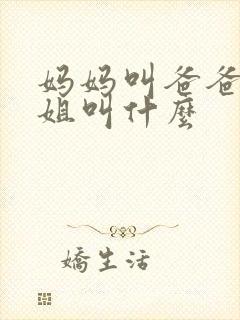 妈妈叫爸爸
姐叫什麼
嬌生活